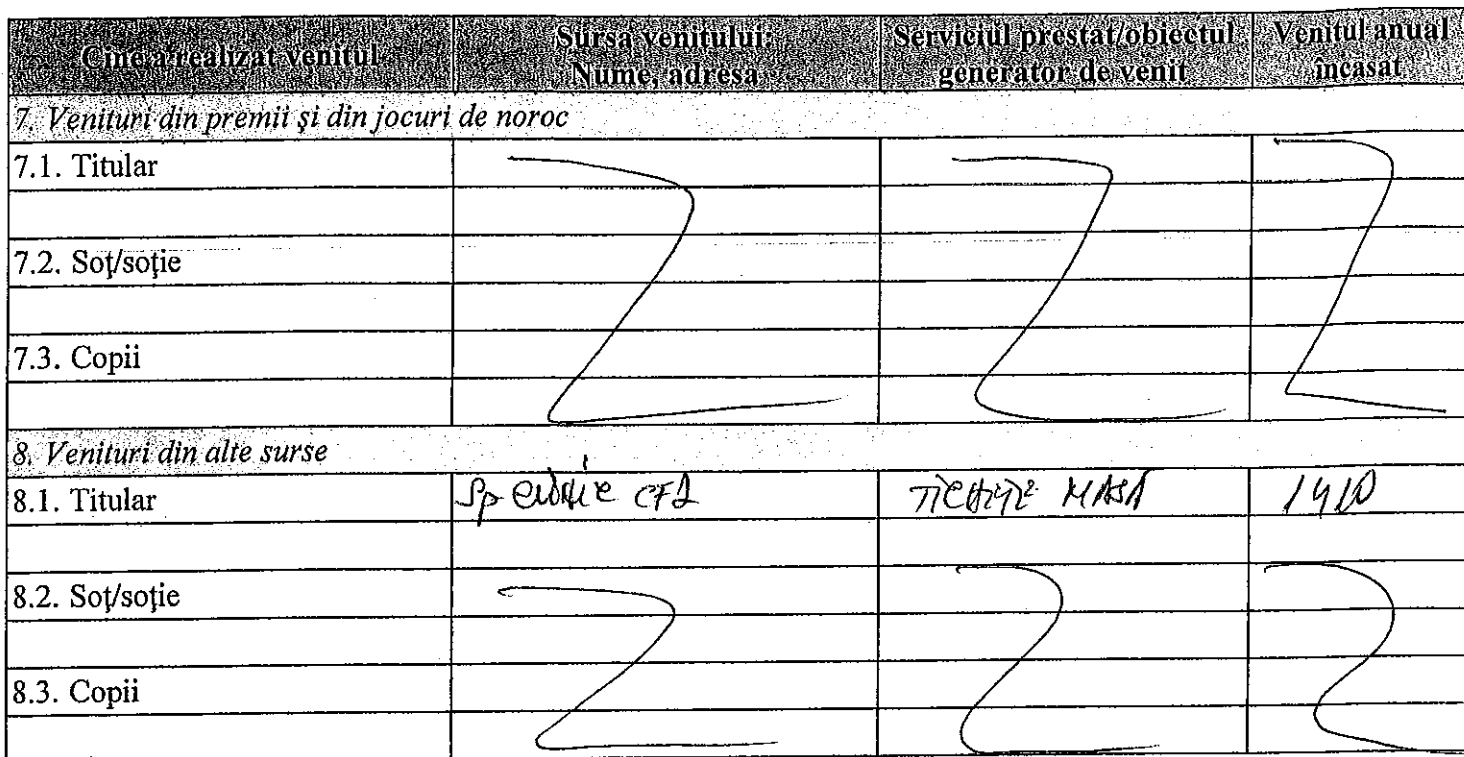 Cine a realizat venitul
Sursa venitului:
Nume, adresa
Serviciul prestat/obiectul
generator de venit
Venitul anual
încasat
7. Venituri din premii și din jocuri de noroc
7.1. Titular
7.2. Soţ/soţie
7.3. Copii
8. Venituri din alte surse
8.1. Titular
Sp
MASA
8.2. Soţ/soţie
8.3. Copii